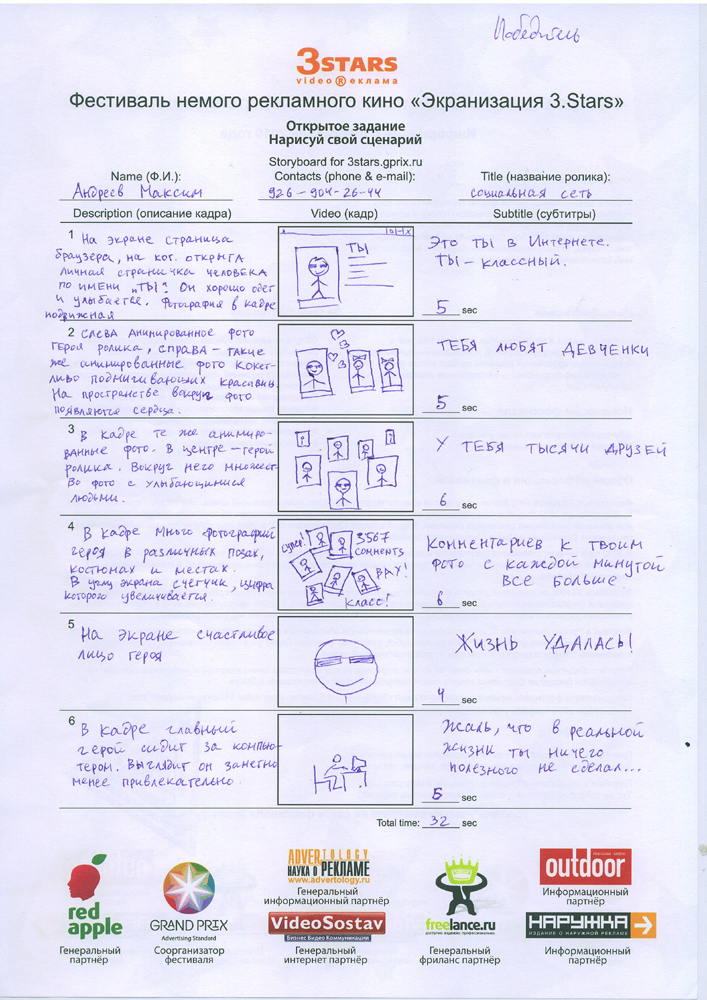 Победитель
3STARS
video Реклама
Фестиваль немого рекламного кино «Экранизация 3.Stars»
Открытое задание
Нарисуй свой сценарий
Storyboard for 3stars.gprix.ru
Name (Ф.И.):
Contacts (phone & e-mail):
Title (название ролика):
Андреев Максим
926-904-26-44
социальная сеть
Description (описание кадра)
Video (кадр)
Subtitle (субтитры)
1 На экране страница
браузера, на кот. открыта
личная страничка человека
по имени "ТЫ". Он хорошо одет
и улыбается. Фотография в кадре
подвижная
ТЫ
Это ты в Интернете.
Ты - классный.
5 sec
2 Слева анимированное фото
героя ролика, справа - такие
же анимированные фото кокет-
ливо подмигивающих красавиц.
На пространстве вокруг фото
появляются сердца.
ТЕБЯ ЛЮБЯТ ДЕВЧЕНКИ
5 sec
3 В кадре те же анимиро-
ванные фото. В центре - герой
ролика. Вокруг него множест-
во фото с улыбающимися
людьми.
У ТЕБЯ ТЫСЯЧИ ДРУЗЕЙ
6 sec
4 В кадре много фотографий
героя в различных позах,
костюмах и местах.
В углу экрана счётчик, цифра
которого увеличивается.
супер!
3567
COMMENTS
ВАУ!
КЛАСС!
Комментариев к твоим
фото с каждой минутой
все больше
6 sec
5 На экране счастливое
лицо героя
Жизнь удалась!
4 sec
6 В кадре главный
герой сидит за компью-
тером. Выглядит он заметно
менее привлекательно.
Жаль, что в реальной
жизни ты ничего
полезного не сделал...
5 sec
Total time: 32 sec
red
apple
Генеральный
партнёр
GRAND PRIX
Advertising Standard
Соорганизатор
фестиваля
ADVERTOLOGY
НАУКА О РЕКЛАМЕ
www.advertology.ru
Генеральный
информационный партнёр
VideoSostav
Бизнес Видео Коммуникации
Генеральный
интернет партнёр
freelance.ru
Генеральный
фриланс партнёр
outdoor
Информационный
партнёр
НАРУЖКА
ИЗДАНИЕ О НАРУЖНОЙ РЕКЛАМЕ
Информационный
партнёр